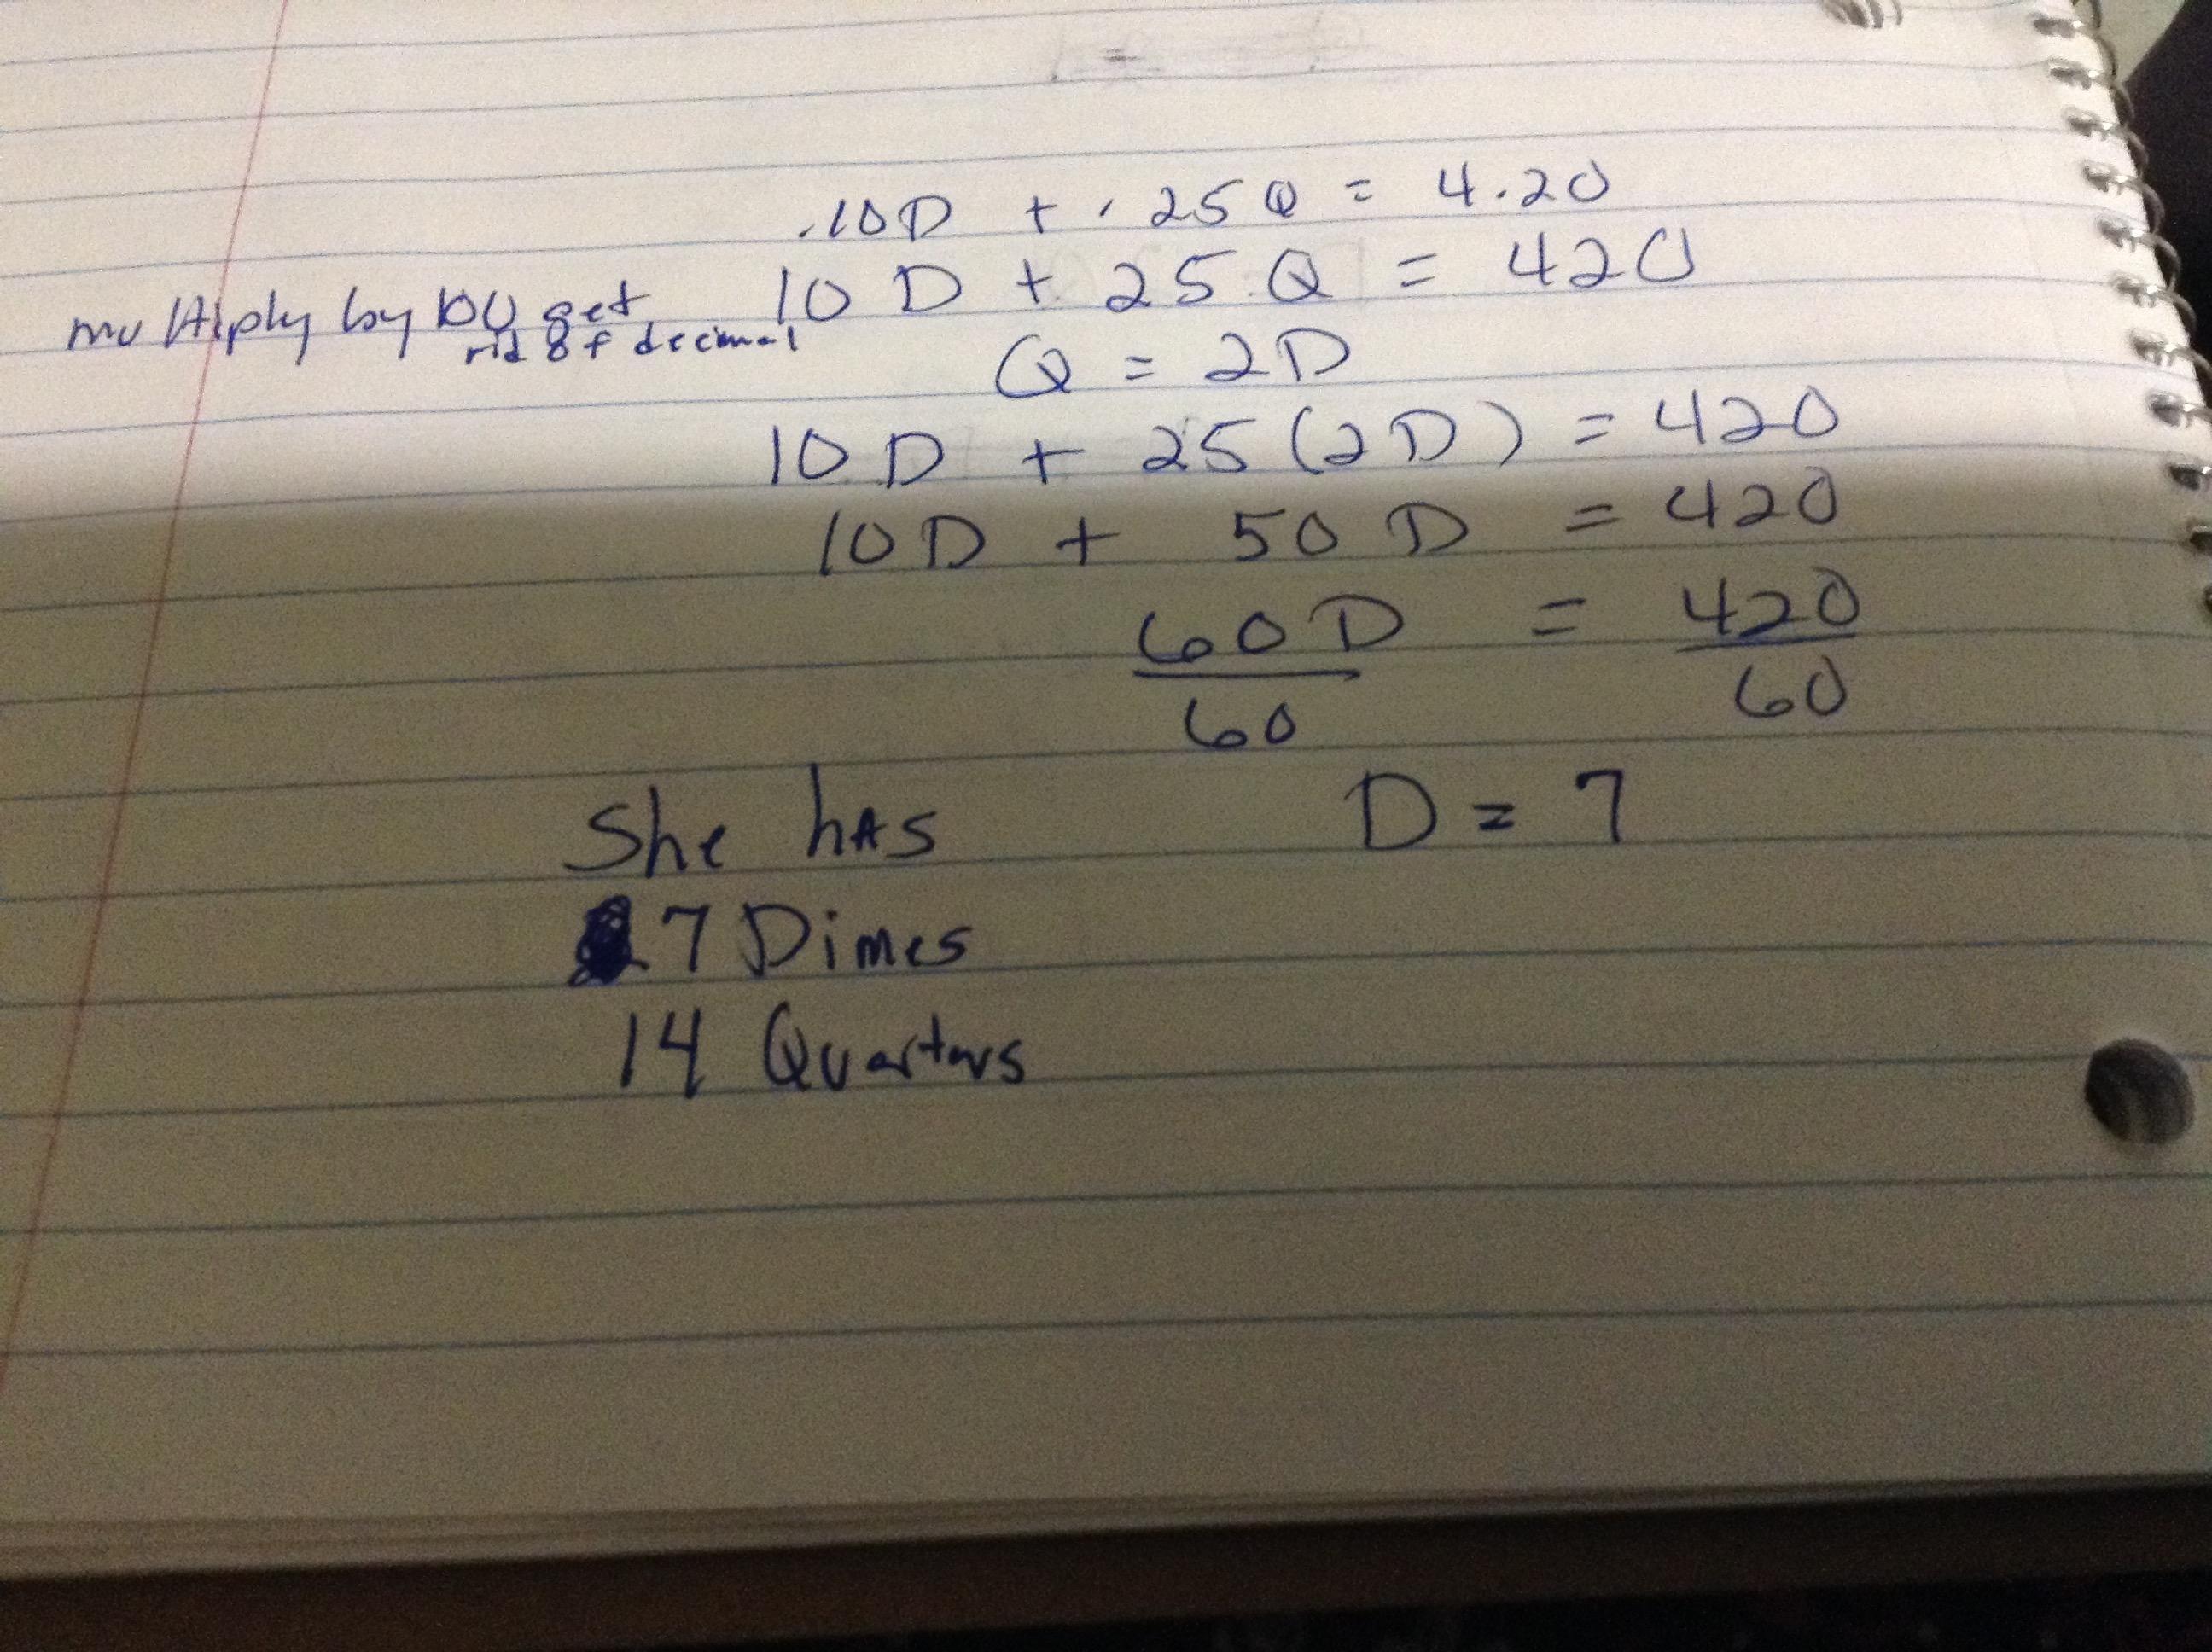 .10D + .25Q = 4.20
multiply by 100 get rid of decimal
10D + 25Q = 420
Q = 2D
10D + 25(2D) = 420
10D + 50D = 420
60D = 420
60 60
D = 7
She hAS
7 Dimes
14 Quarters